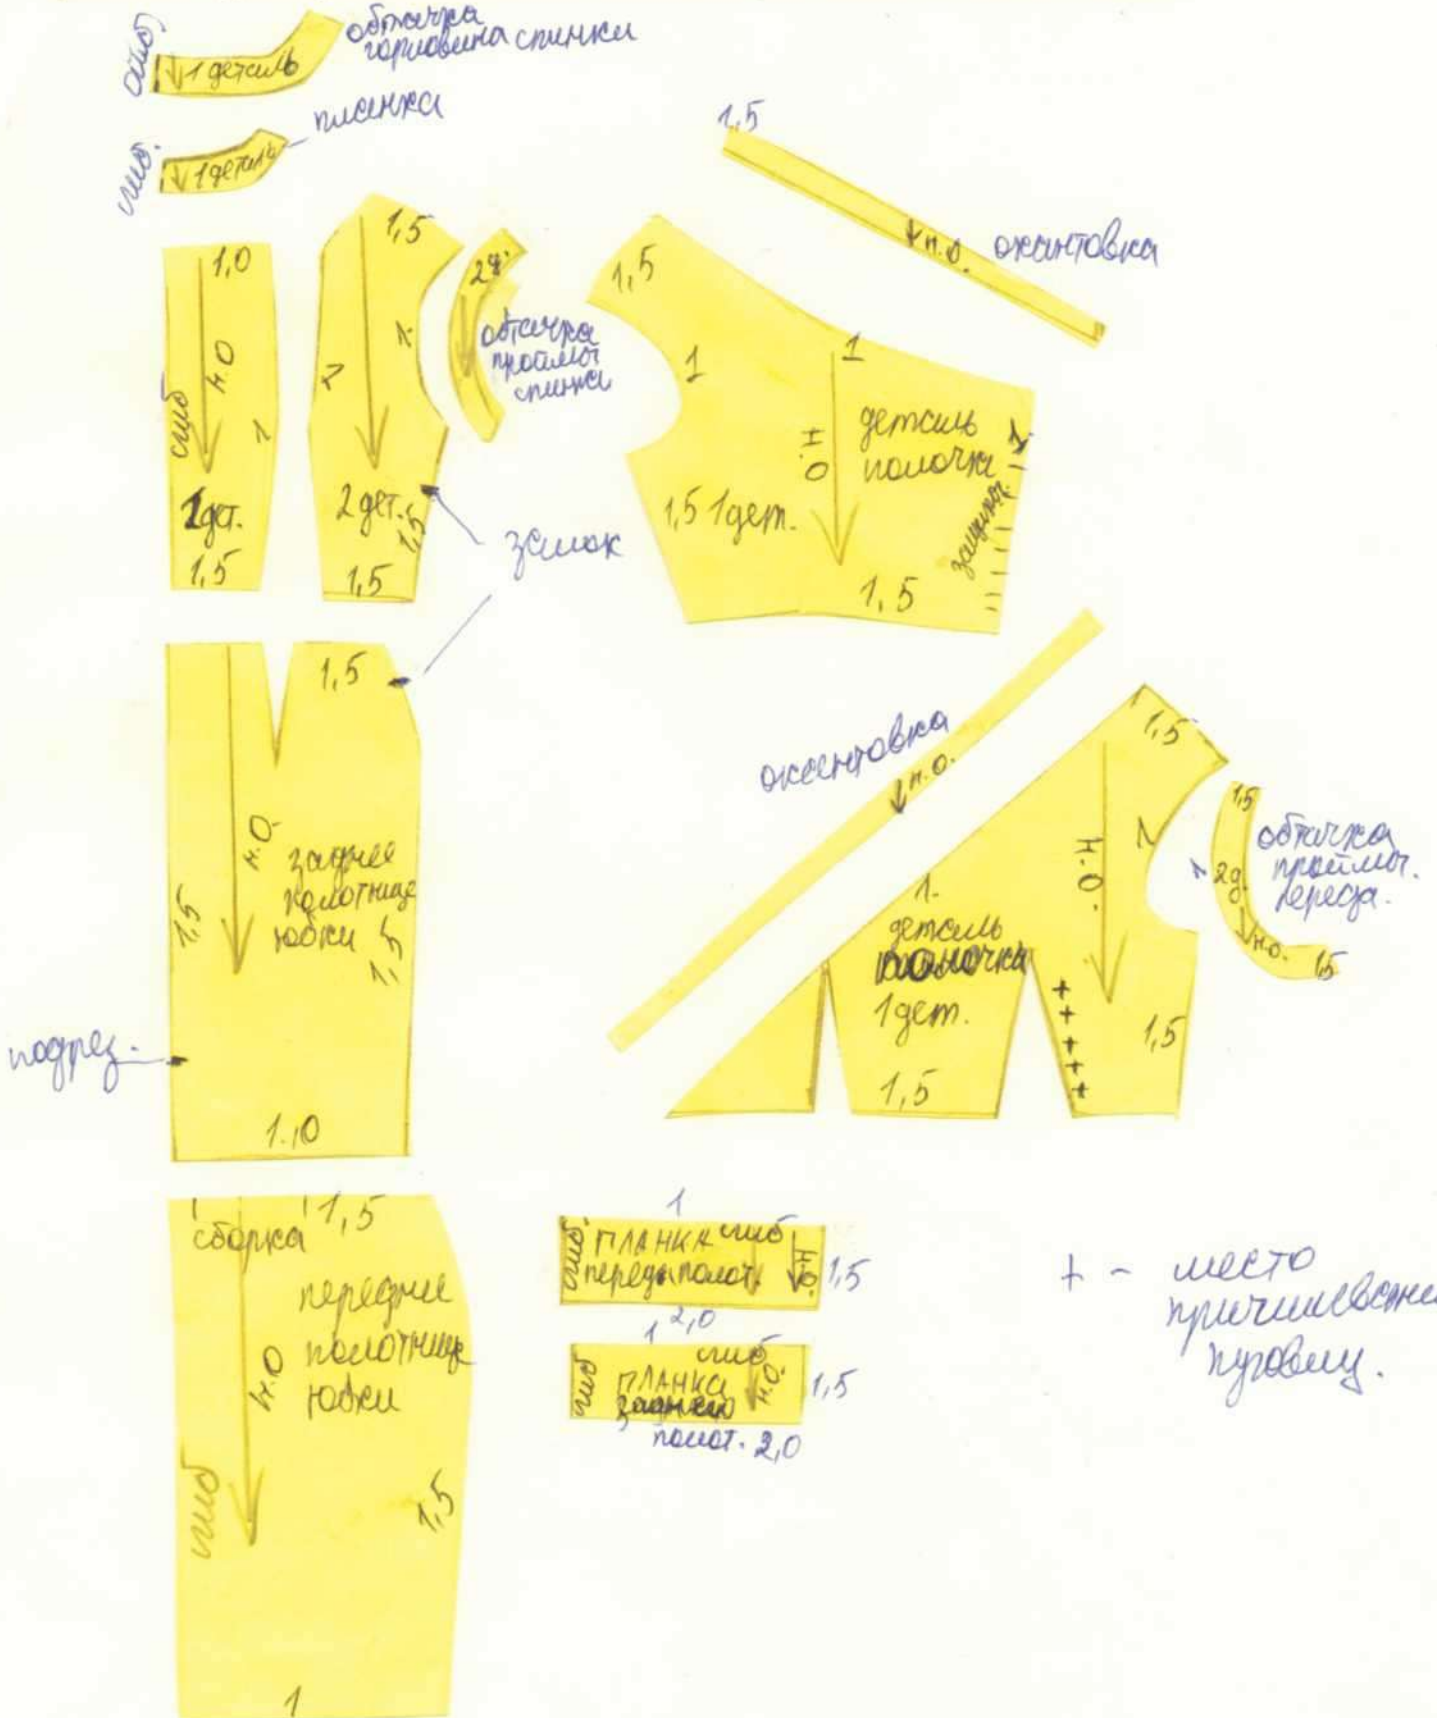 сгиб
1 деталь
обтачка
горловина спинки
сгиб.
1 деталь
планка
1,0
н.о
сгиб
1
1дет.
1,5
1,5
1
1.
2 дет.
1,5
1,5
2д.
обтачка
проймы
спинка
замок
1,5
н.о. окантовка
1,5
1
1
н.о
деталь
полочка
1
защипы.
1,5 1дет.
1,5
1,5
н.о.
заднее
полотнище
юбки
1,5
1,5
подрез.
1.,0
окантовка
н.о.
1,5
н.о.
1
1.
деталь
полочка
1дет.
+
+
+
+
+
1,5
1,5
1,5
1
2д.
н.о.
1,5
обтачка
проймы.
переда.
сборка
1,5
н.о
передние
полотнище
юбки
сгиб
1,5
1
1
сгиб.
ПЛАНКА сгиб
передн полот.
н.о.
1,5
2,0
1
сгиб
сгиб
ПЛАНКА
заднего
полот. 2,0
н.о.
1,5
+ - место
пуговиц.